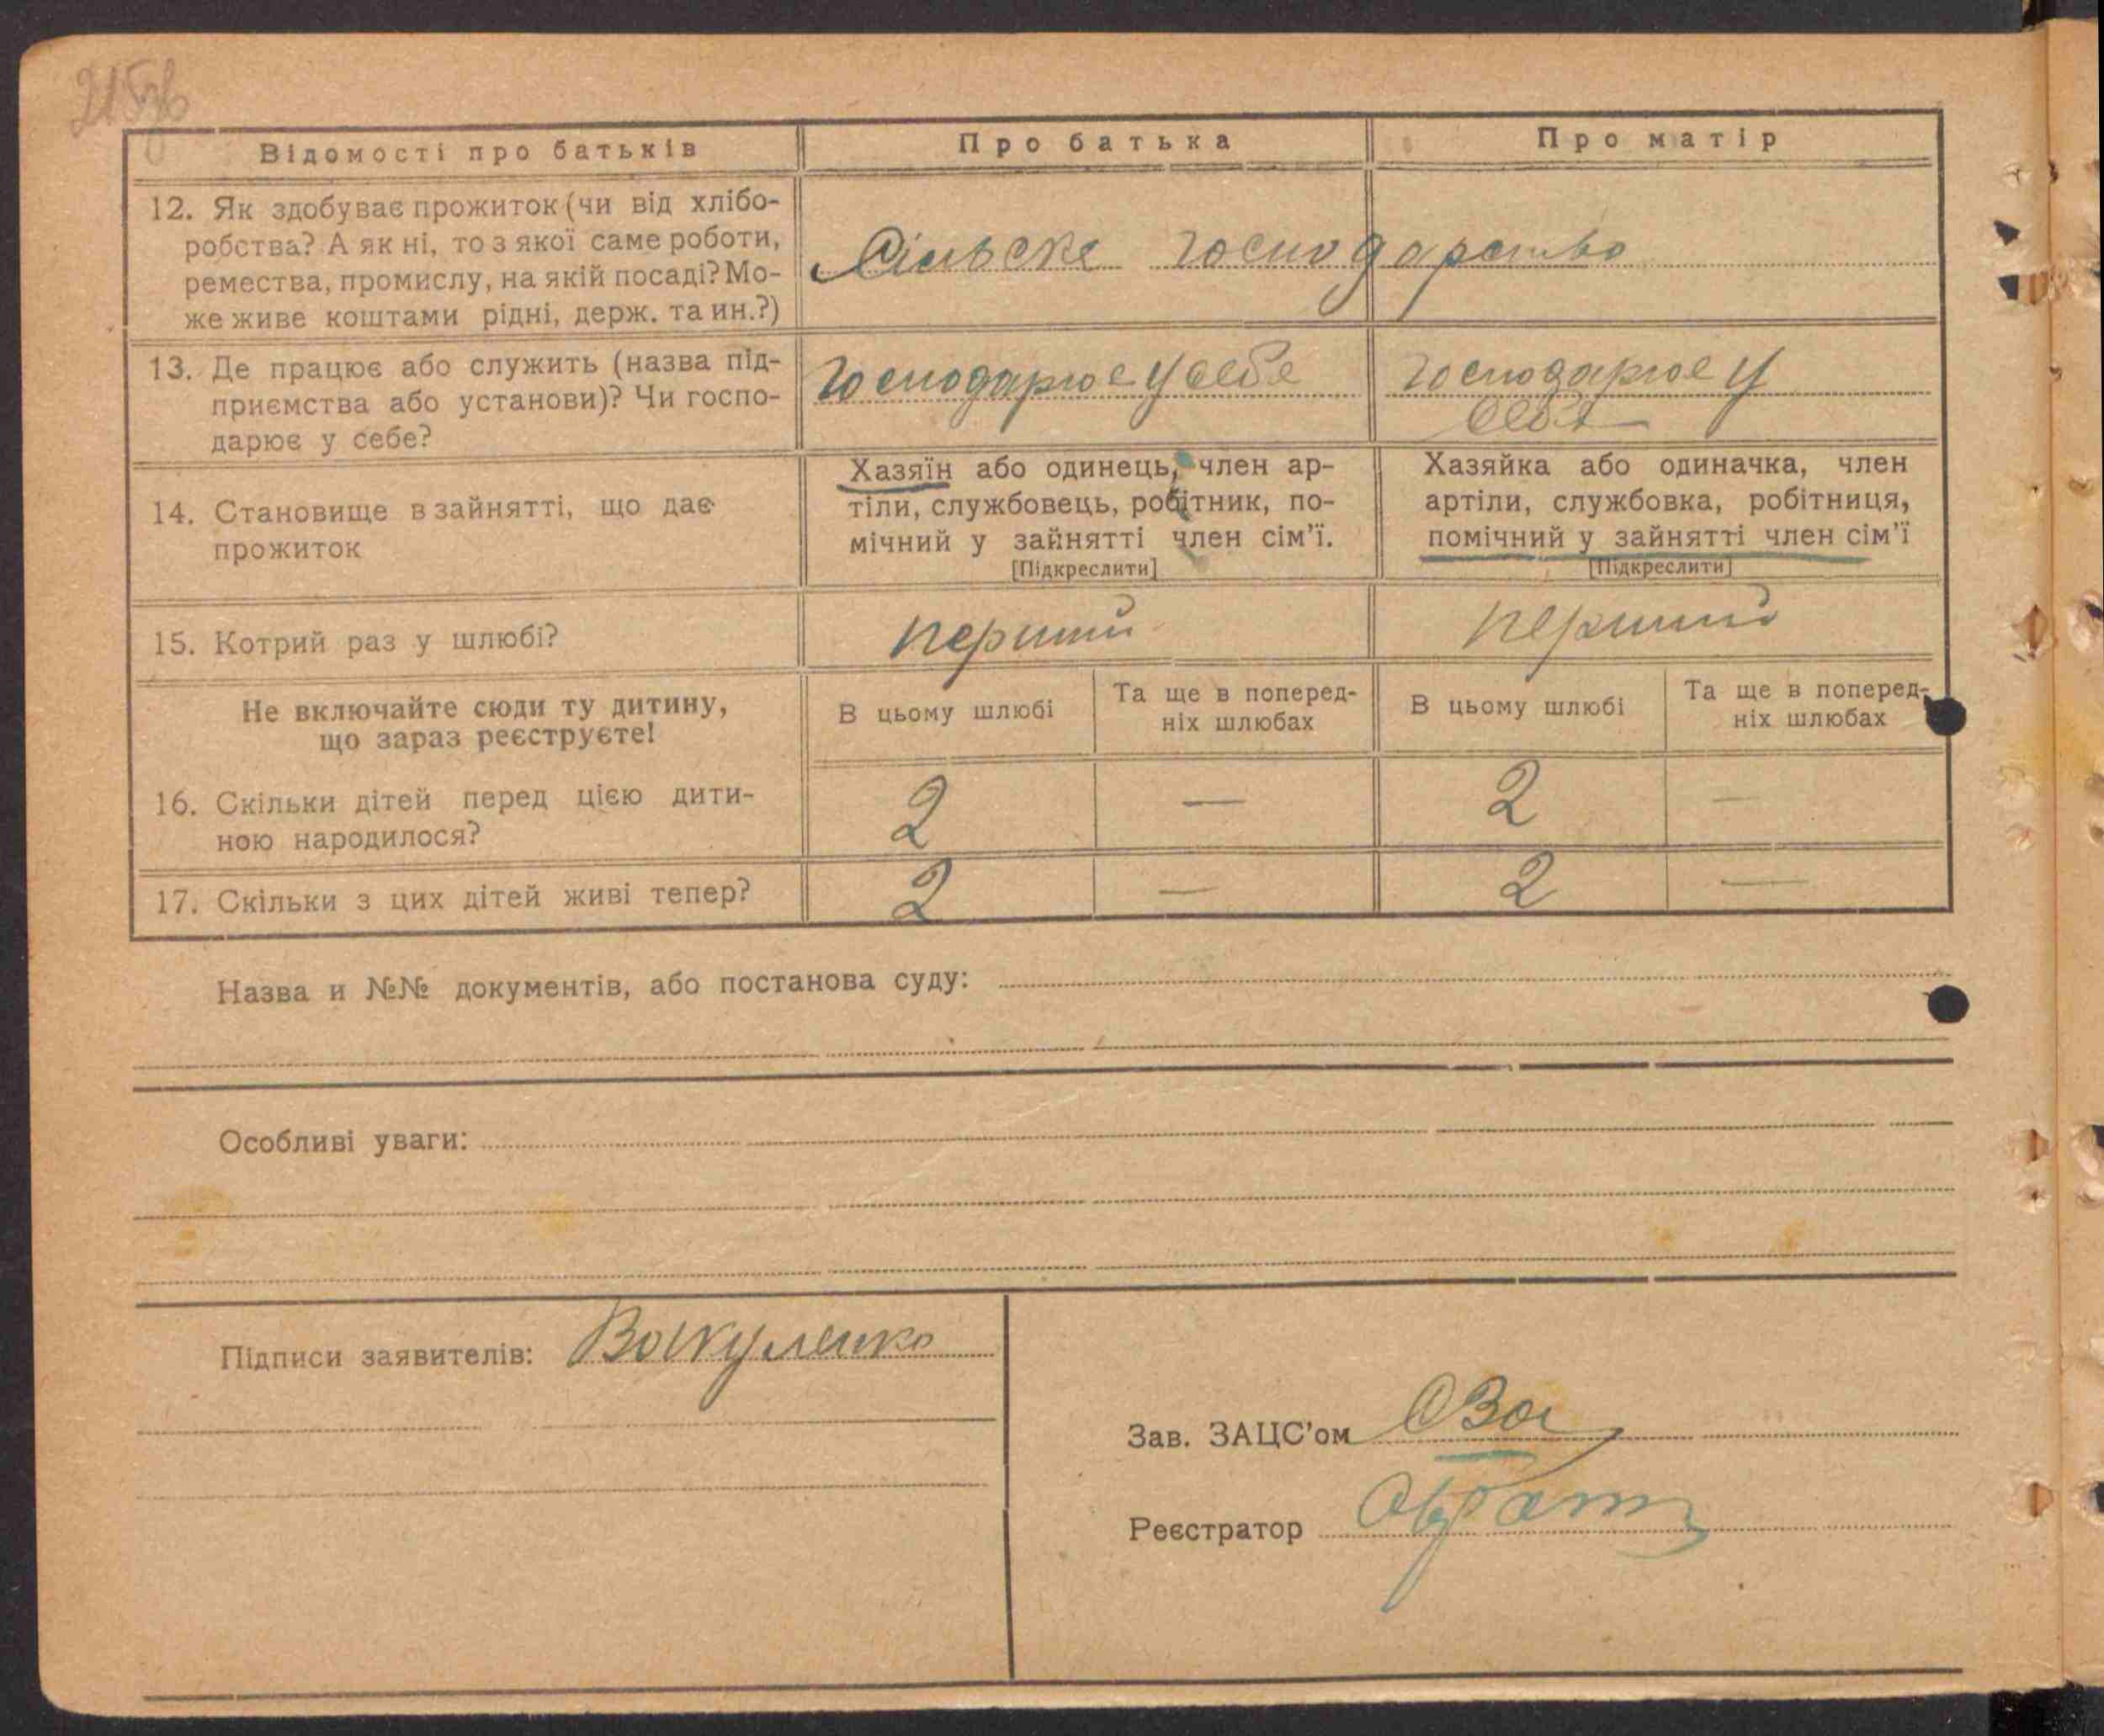 215зв
Відомості про батьків
Про батька
Про матір
12. Як здобуває прожиток (чи від хлібо-
робства? А як ні, то з якої саме роботи,
ремества, промислу, на якій посаді? Мо-
же живе коштами рідні, держ. та ин.?)
Сільске господарство
13. Де працює або служить (назва під-
приємства або установи)? Чи госпо-
дарює у себе?
господарює у себе
господарює у
себе
14. Становище в зайнятті, що дає
прожиток
Хазяїн або одинець, член ар-
тіли, службовець, робітник, по-
мічний у зайнятті член сім'ї.
[Підкреслити]
Хазяйка або одиначка, член
артіли, службовка, робітниця,
помічний у зайнятті член сім'ї
[Підкреслити]
15. Котрий раз у шлюбі?
перший
перший
Не включайте сюди ту дитину,
що зараз реєструєте!
В цьому шлюбі
Та ще в поперед-
ніх шлюбах
В цьому шлюбі
Та ще в поперед-
ніх шлюбах
16. Скільки дітей перед цією дити-
ною народилося?
2 — 2 —
17. Скільки з цих дітей живі тепер?
2 — 2 —
Назва и №№ документів, або постанова суду:
Особливі уваги:
Підписи заявителів: Вакуленко
Зав. ЗАЦС'ом
Реєстратор